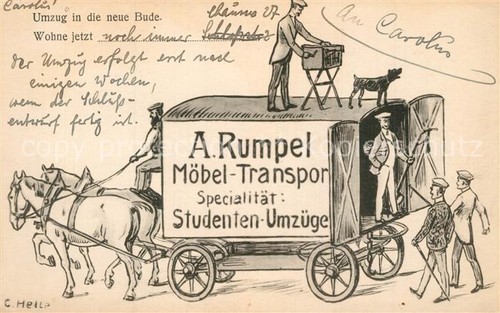 Carolus!
Umzug in die neue Bude.
Wohne jetzt noch immer
27
An Carolus
der Umzug erfolgt erst nach
einigen Wochen,
wenn der Schluß-
entwurf fertig ist.
A. Rumpel
Möbel-Transpor
Specialität:
Studenten-Umzüge